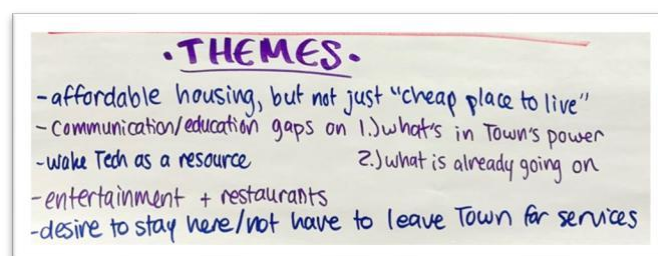 •THEMES•
-affordable housing, but not just "cheap place to live"
-Communication/education gaps on 1.) what's in Town's power
-Wake Tech as a resource 2.) what is already going on
-entertainment + restaurants
-desire to stay here/not have to leave Town for services